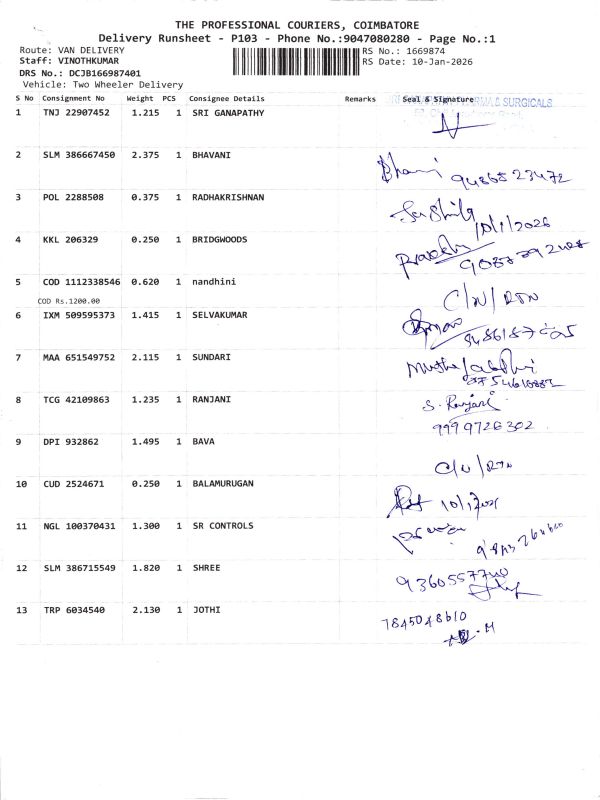 THE PROFESSIONAL COURIERS, COIMBATORE
Delivery Runsheet - P103 - Phone No.:9047080280 - Page No.:1
Route: VAN DELIVERY
RS No.: 1669874
Staff: VINOTHKUMAR
RS Date: 10-Jan-2026
DRS No.: DCJB166987401
Vehicle: Two Wheeler Delivery
S No Consignment No Weight PCS Consignee Details Remarks Seal & Signature
& SURGICALS
1 TNJ 22907452 1.215 1 SRI GANAPATHY
2 SLM 386667450 2.375 1 BHAVANI
9486523472
3 POL 2288508 0.375 1 RADHAKRISHNAN
10/1/2026
4 KKL 206329 0.250 1 BRIDGWOODS
5 COD 1112338546 0.620 1 nandhini C/N/RTN
COD Rs.1200.00
6 IXM 509595373 1.415 1 SELVAKUMAR
7 MAA 651549752 2.115 1 SUNDARI
8 TCG 42109863 1.235 1 RANJANI S. Ranjani
9999726302
9 DPI 932862 1.495 1 BAVA
C/N/RTN
10 CUD 2524671 0.250 1 BALAMURUGAN
11 NGL 100370431 1.300 1 SR CONTROLS
12 SLM 386715549 1.820 1 SHREE
13 TRP 6034540 2.130 1 JOTHI
7845048610